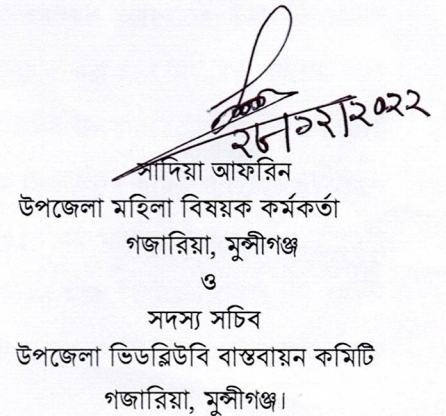 ২৮।১২।২০২২
সাদিয়া আফরিন
উপজেলা মহিলা বিষয়ক কর্মকর্তা
গজারিয়া, মুন্সীগঞ্জ
ও
সদস্য সচিব
উপজেলা ভিডব্লিউবি বাস্তবায়ন কমিটি
গজারিয়া, মুন্সীগঞ্জ।